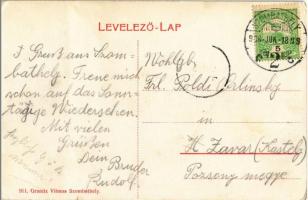 LEVELEZŐ-LAP
I. Gruss aus Szom-
bathely. Freue mich
schon auf das Sonn-
tägige Wiedersehen.
Mit vielen
Grüßen
Dein Bruder
Rudolf.
Wohlgb.
Frl. Poldi Orlinsky
in
H Zavar (Kastel)
Pozsony megye
904 JUN.
161. Granitz Vilmos Szombathely.